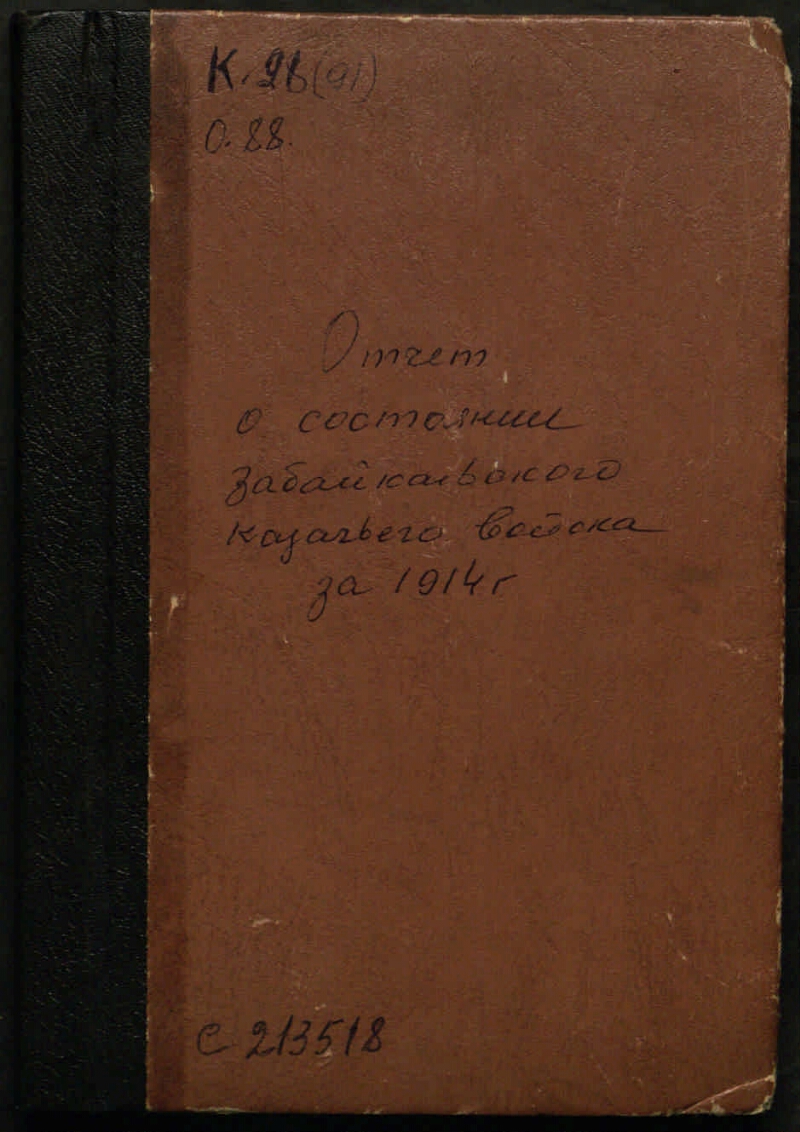 К.28(91)
О.88.
Отчет
о состоянии
Забайкальского
казачьего войска
за 1914г
С 213518